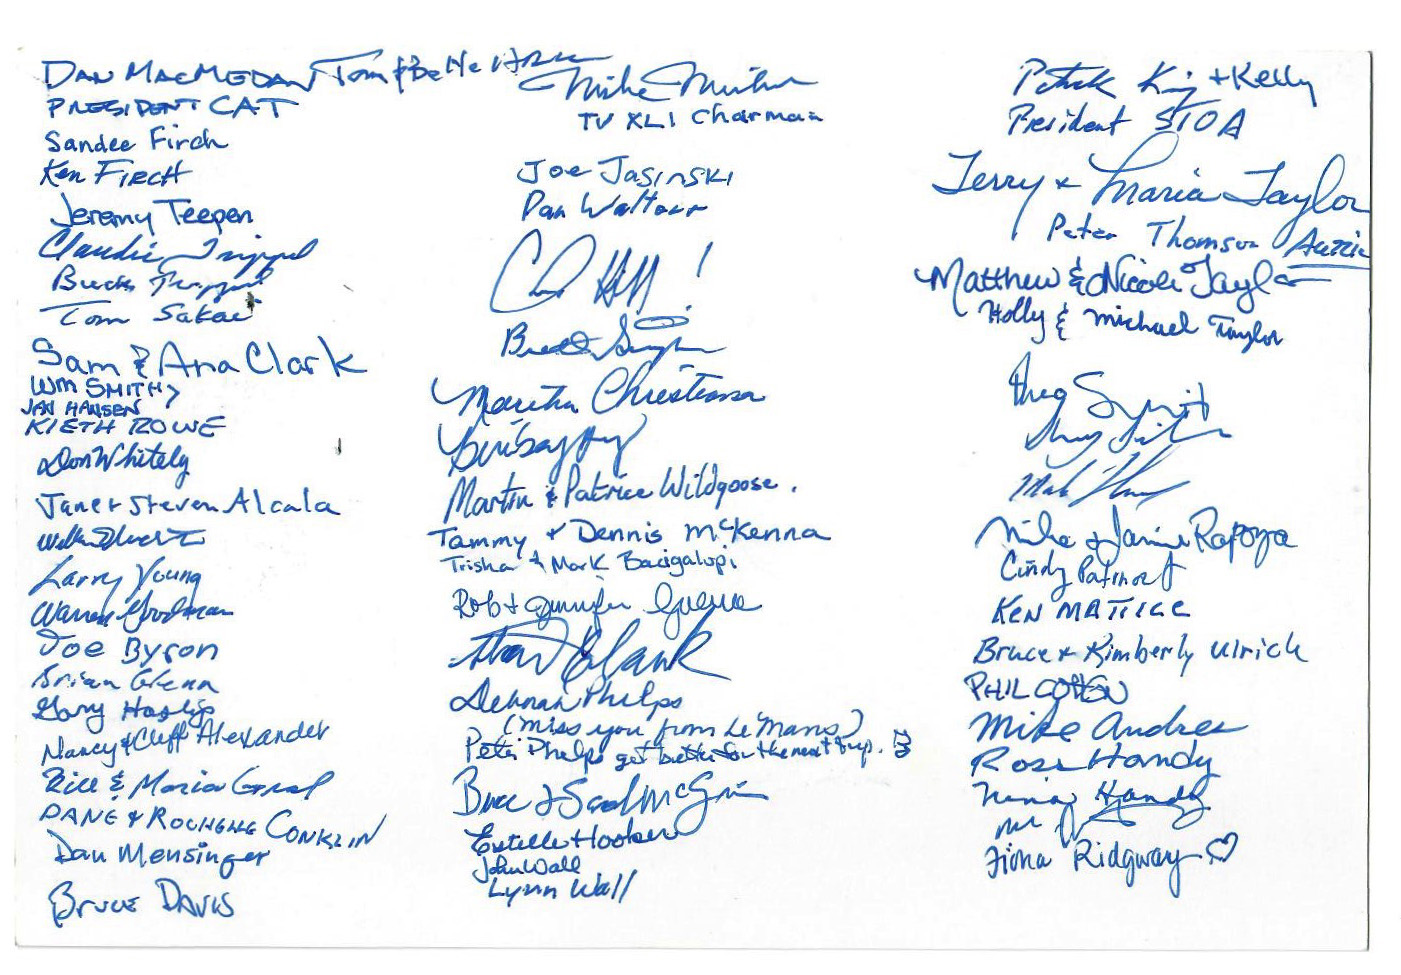 DAN MACMEDAN Tom & Belle
PRESIDENT CAT
Sandee Firch
Ken FIRCH
Jeremy Teepen
Claudie Trippel
Buck Trippel
Tom Sakai
Sam & Ana Clark
WM SMITH
JAN HANSEN
KIETH ROWE
Don Whitely
Janet Steven Alcala
Larry Young
Warren Goodman
Joe Byron
Brian Glenn
Gary Haslip
Nancy & Cliff Alexander
Bill & Maria
DANE & ROCHELLE CONKLIN
Dan Mensinger
Bruce DAVIS
Mike
TV XLI Charman
Joe Jasinski
Dan Walters
!
Brett
Martha Christiansa
Martin & Patrice Wildgoose.
Tammy & Dennis McKenna
Trisha & Mark Bacigalupi
Rob & Jennifer
Clark
Dennah Phelps
(Miss you from Le Mans)
Pete Phelps get better for the next trip.
Estelle Hooker
John Wall
Lynn Wall
Patrick King + Kelly
President STOA
Terry & Maria Taylor
Peter Thomson
Matthew & Nicole Taylor
Holly & Michael Taylor
Mark
Mike & Janine Rapoza
Cindy
KEN MATTICE
Bruce & Kimberly Ulrich
PHIL COTTON
Mike Andree
Ross Handy
Nina Handy
Fiona Ridgway ♡